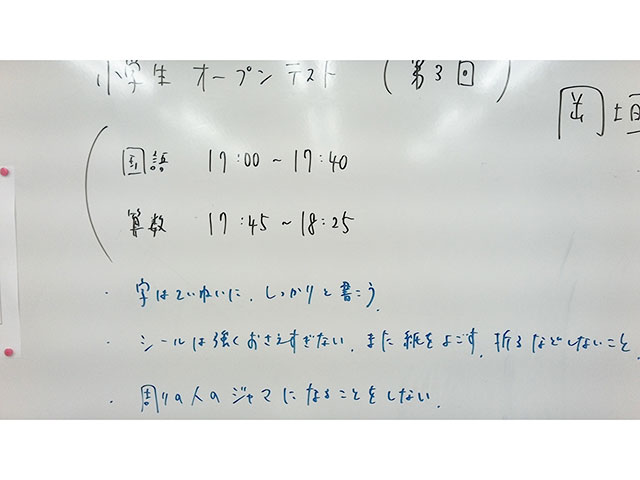 小学生 オープンテスト (第3回)
岡垣
国語 17:00~17:40
算数 17:45~18:25
・字はていねいに、しっかりと書こう.
・シールは強くおさえすぎない. また紙をよごす. 折るなどしないこと.
・周りの人のジャマになることをしない.